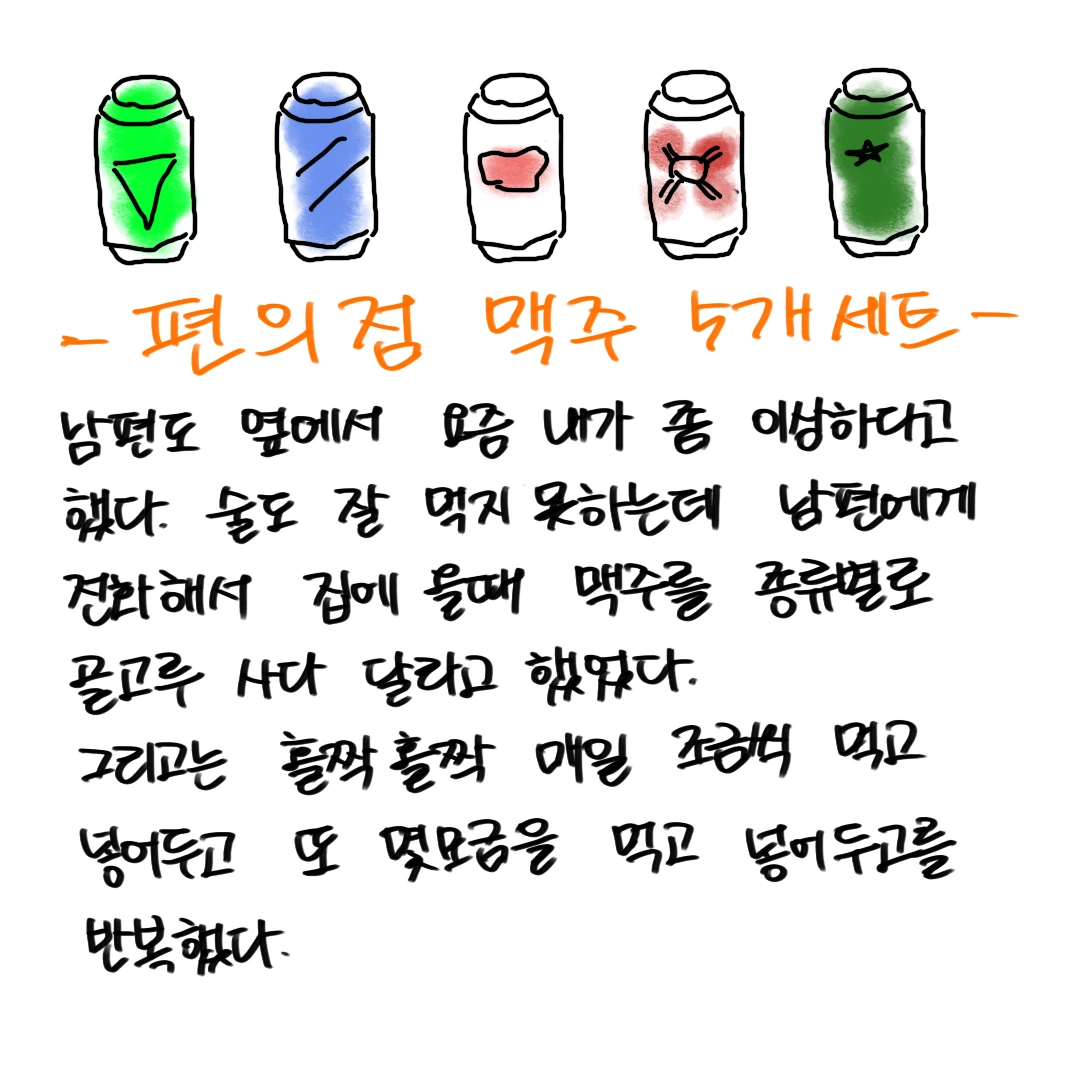 - 편의점 맥주 5개세트 -
남편도 옆에서 요즘 내가 좀 이상하다고
했다. 술도 잘 먹지 못하는데 남편에게
전화해서 집에 올때 맥주를 종류별로
골고루 사다 달라고 했었다.
그리고는 홀짝홀짝 매일 조금씩 먹고
넣어두고 또 몇모금을 먹고 넣어두고를
반복했다.